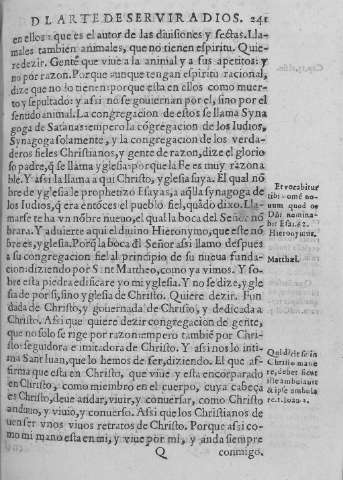 D L ARTE DE SERVIR A DIOS. 241
en ellos: que es el autor de las diuisiones y sectas. Lla-
males tambien animales, que no tienen espiritu. Quie-
re dezir. Gente que viue a la animal y a sus apetitos: y
no por razon. Porque aunque tengan espiritu racional,
dize que no lo tienen: porque esta en ellos como muer-
to y sepultado: y assi no se gouiernan por el, sino por el
sentido animal. La congregacion de estos se llama Syna
goga de Satanas: empero la cõgregacion de los Iudios,
Synagoga solamente, y la congregacion de los verda-
deros fieles Christianos, y gente de razon, dize el glorio
so padre, q̃ se llama yglesia: porque la Fe es muy razona
ble. Y assi llama a qui Christo, yglesia suya. El qual nõ
bre de yglesia le prophetizó Esayas, a aq̃lla synagoga de
los Iudios, q̃ era entõces el pueblo fiel, quãdo dixo. Lla-
marse te ha vn nõbre nueuo, el qual la boca del Señor nõ
brara. Y aduierte aqui el diuino Hieronymo, que este nõ
bre es, yglesia. Porq̃ la boca dl Señor assi llamo despues
a su congregacion fiel al principio de su nueua funda-
cion: diziendo por S. nt Mattheo, como ya vimos. Y so-
bre esta piedra edificare yo mi yglesia. Y no se dize, ygle
sia de por si, sino yglesia de Christo. Quiere dezir. Fun
dada de Christo, y gouernada de Christo, y dedicada a
Christo. Assi que quiere dezir congregacion de gente,
que no solo se rige por razon: empero tambiē por Chri-
sto: seguidora e imitadora de Christo. Y assi nos lo inti-
ma Sant Iuan, que lo hemos de ser, diziendo. El que af-
firma que esta en Christo, que viue y esta encorporado
en Christo, como miembro en el cuerpo, cuya cabeça
es Christo, deue andar, viuir, y conuersar, como Christo
anduuo, y viuio, y conuerso. Assi que los Christianos de
uen ser vnos viuos retratos de Christo. Porque assi co-
mo mi mano esta en mi, y viue por mi, y anda siempre
Q conmigo.
Et vocabitur
tibi nomē no-
uum quod os
Dñi nomina-
bit Esai. 62.
Hieronymus.
Matthæi.
Qui dicit se in
Christo mane
re, debet sicut
ille ambulauit
& ipse ambula
re. 1. Ioan. 2.